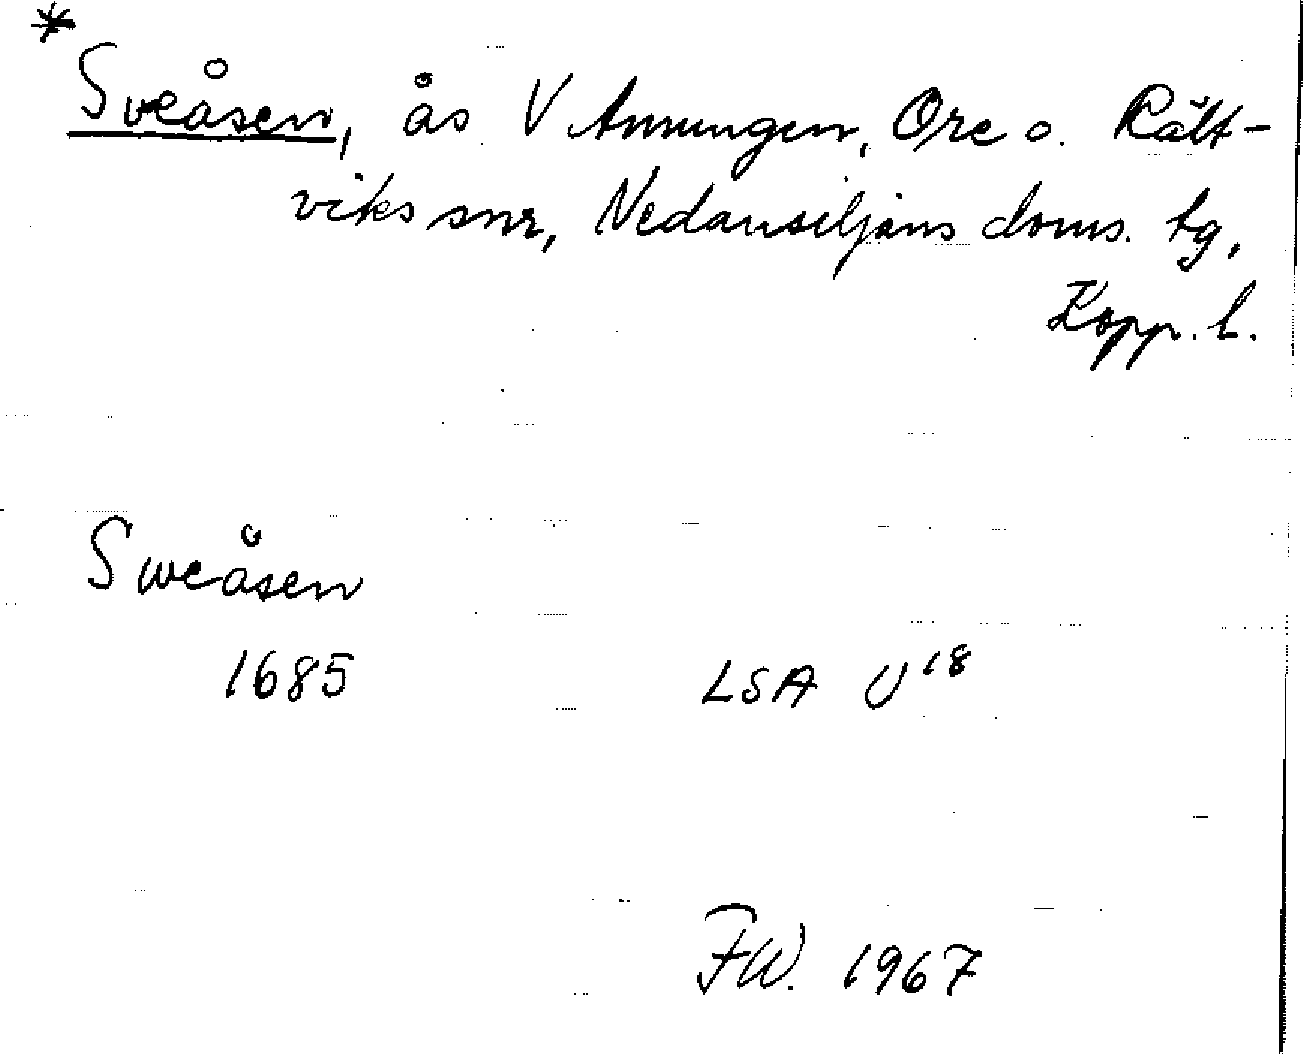 *
Sveåsen, ås V Amungen, Ore o. Rätt-
viks snr, Nedansiljans doms. tg,
Kopp. l.
Sweåsen
1685 LSA U18
FW. 1967